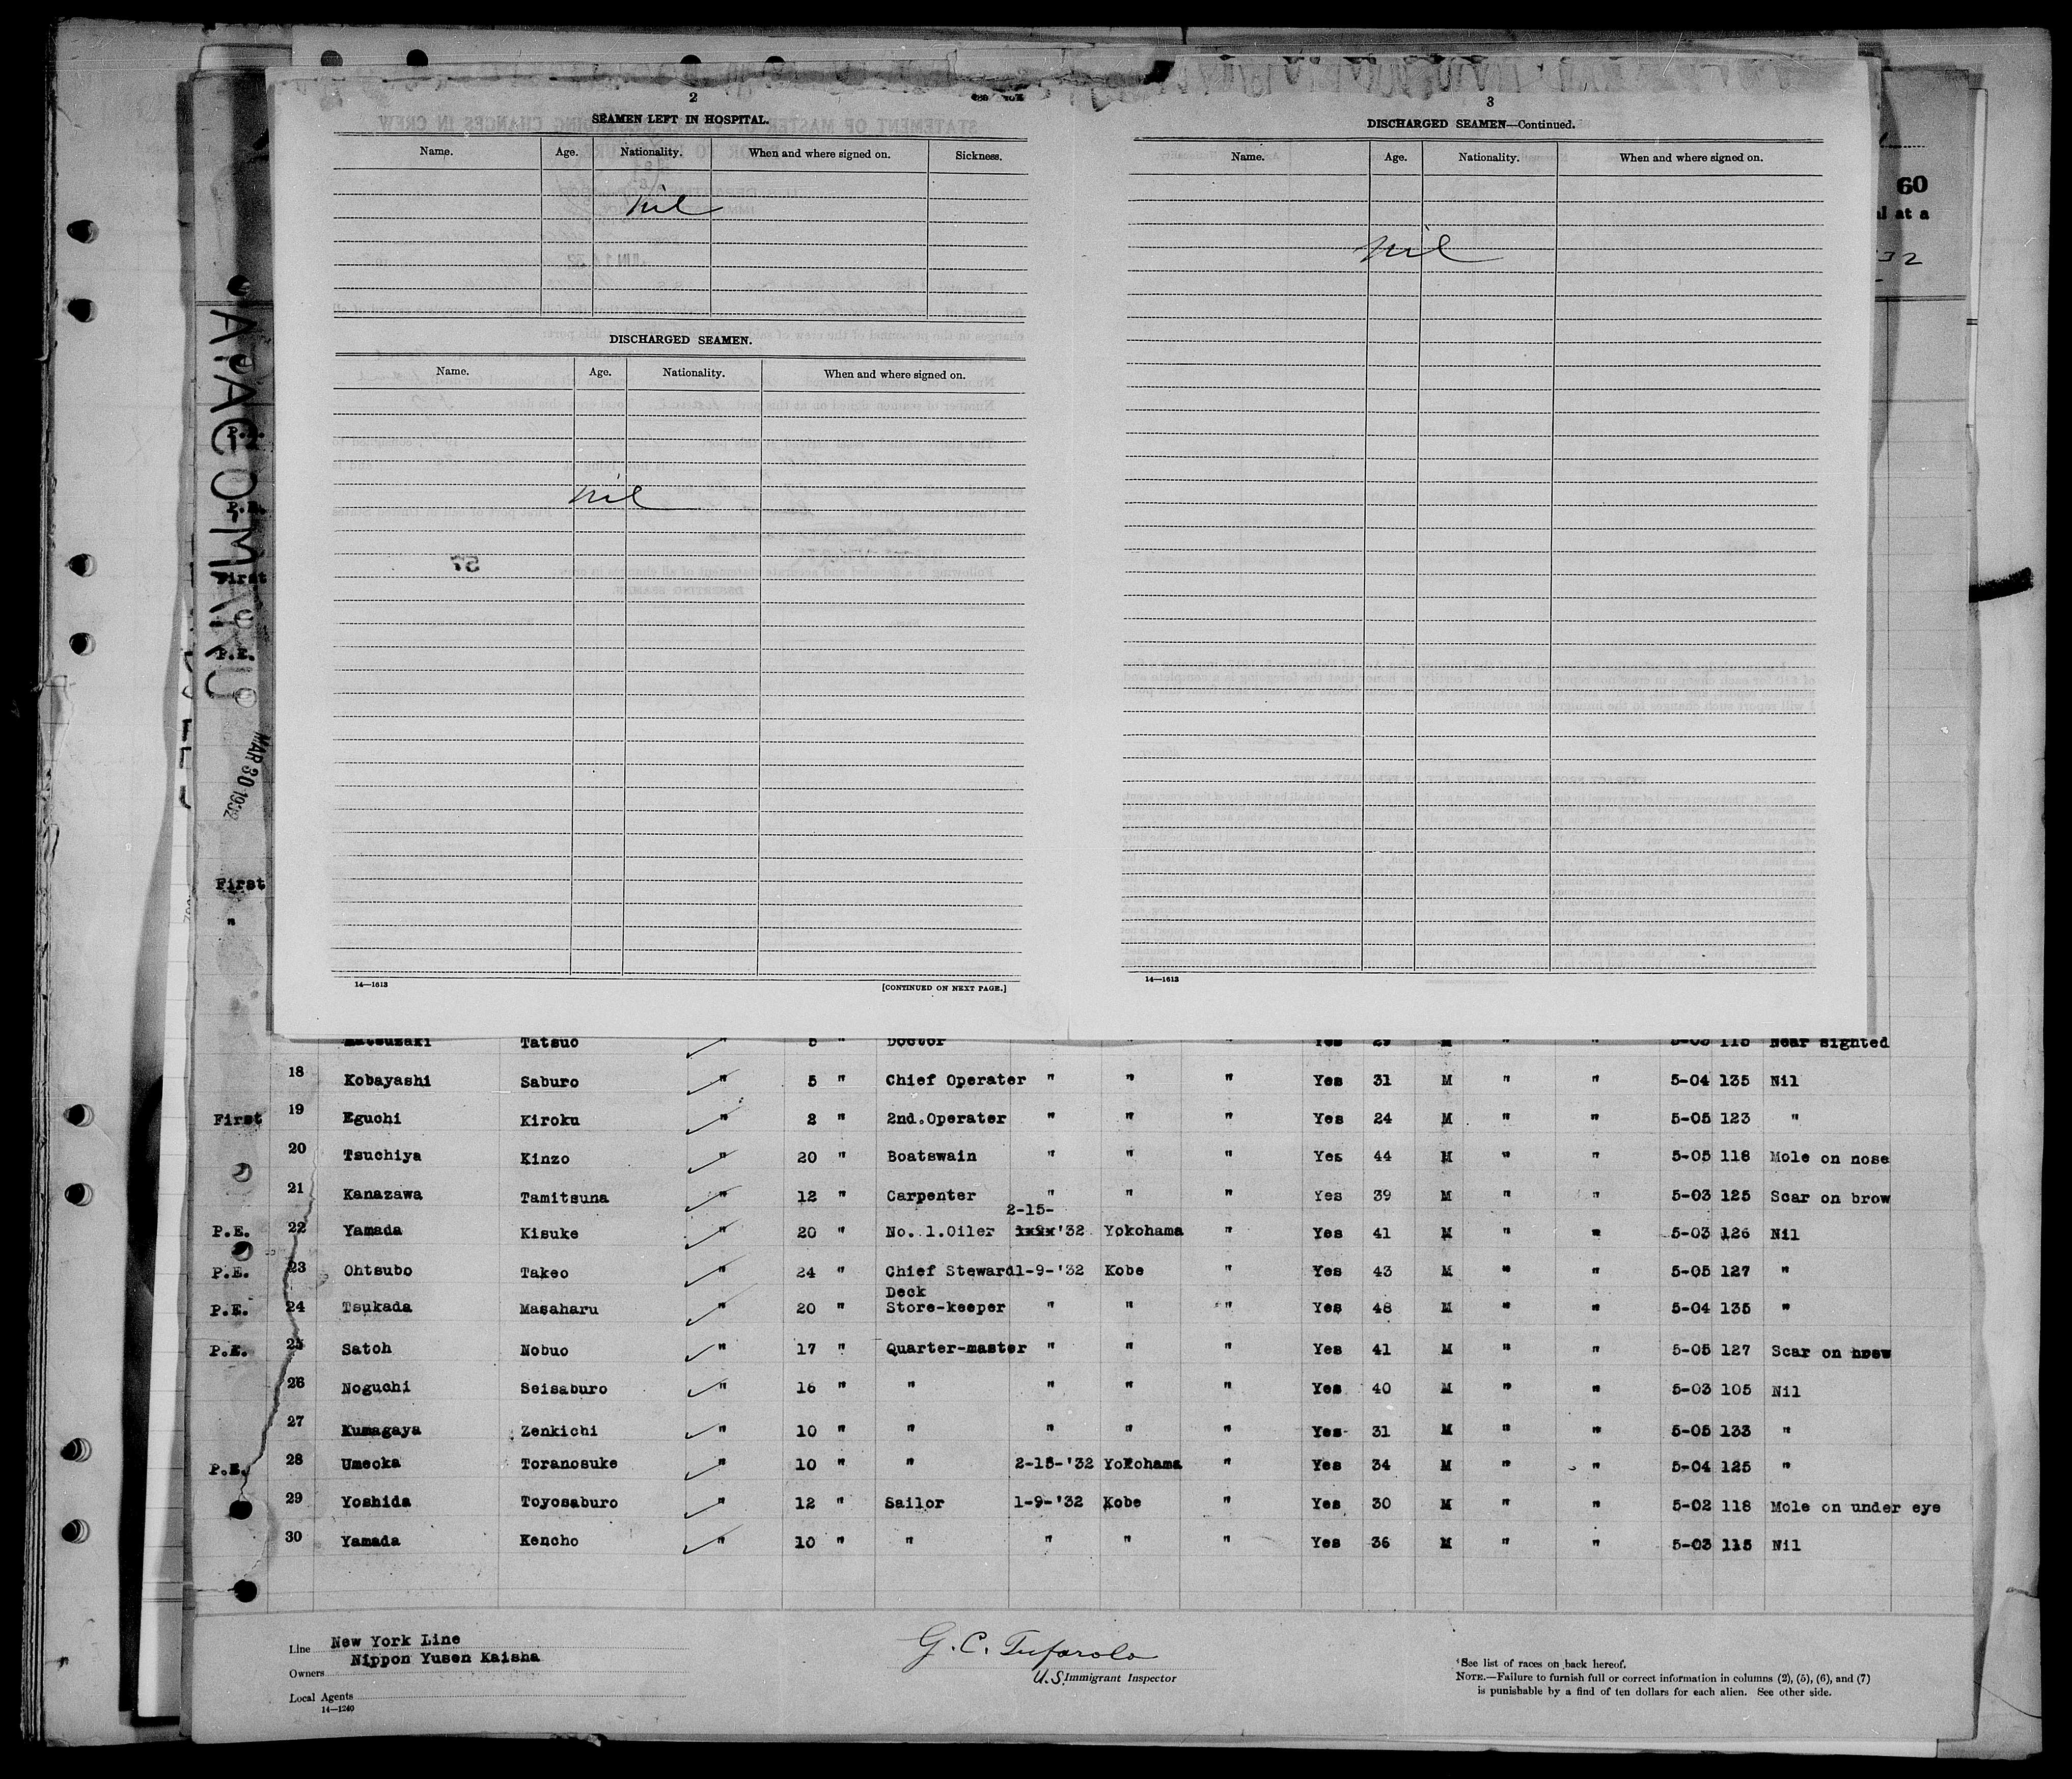 2
SEAMEN LEFT IN HOSPITAL.
Name. Age. Nationality. When and where signed on. Sickness.
nil
DISCHARGED SEAMEN.
Name. Age. Nationality. When and where signed on.
nil
57
14—1613 [CONTINUED ON NEXT PAGE.]
3
DISCHARGED SEAMEN—Continued.
Name. Age. Nationality. When and where signed on.
nil
14—1613
60
al at a
MAR 30 1932
P.E.
First
P.E.
First
"
Matsuzaki Tatsuo " 5 " Doctor " " " Yes 29 M " " 5-03 115 Near sighted
18 Kobayashi Saburo " 5 " Chief Operater " " " Yes 31 M " " 5-04 135 Nil
First 19 Eguchi Kiroku " 2 " 2nd.Operater " " " Yes 24 M " " 5-05 123 "
20 Tsuchiya Kinzo " 20 " Boatswain " " " Yes 44 M " " 5-05 118 Mole on nose
21 Kanazawa Tamitsuna " 12 " Carpenter " " " Yes 39 M " " 5-03 125 Scar on brow
2-15-
P.E. 22 Yamada Kisuke " 20 " No. 1.Oiler '32 Yokohama " Yes 41 M " " 5-03 126 Nil
P.E. 23 Ohtsubo Takeo " 24 " Chief Steward 1-9-'32 Kobe " Yes 43 M " " 5-05 127 "
Deck
P.E. 24 Tsukada Masaharu " 20 " Store-keeper " " " Yes 48 M " " 5-04 135 "
P.E. 25 Satoh Nobuo " 17 " Quarter-master " " " Yes 41 M " " 5-05 127 Scar on brow
26 Noguchi Seisaburo " 16 " " " " " Yes 40 M " " 5-03 105 Nil
27 Kumagaya Zenkichi " 10 " " " " " Yes 31 M " " 5-05 133 "
P.E. 28 Umeoka Toranosuke " 10 " " 2-15-'32 Yokohama " Yes 34 M " " 5-04 125 "
29 Yoshida Toyosaburo " 12 " Sailor 1-9-'32 Kobe " Yes 30 M " " 5-02 118 Mole on under eye
30 Yamada Kencho " 10 " " " " " Yes 36 M " " 5-03 115 Nil
Line New York Line
Owners Nippon Yusen Kaisha
Local Agents
14—1240
G. C. Tufarolo
U.S. Immigrant Inspector
See list of races on back hereof.
NOTE.—Failure to furnish full or correct information in columns (2), (5), (6), and (7)
is punishable by a find of ten dollars for each alien. See other side.